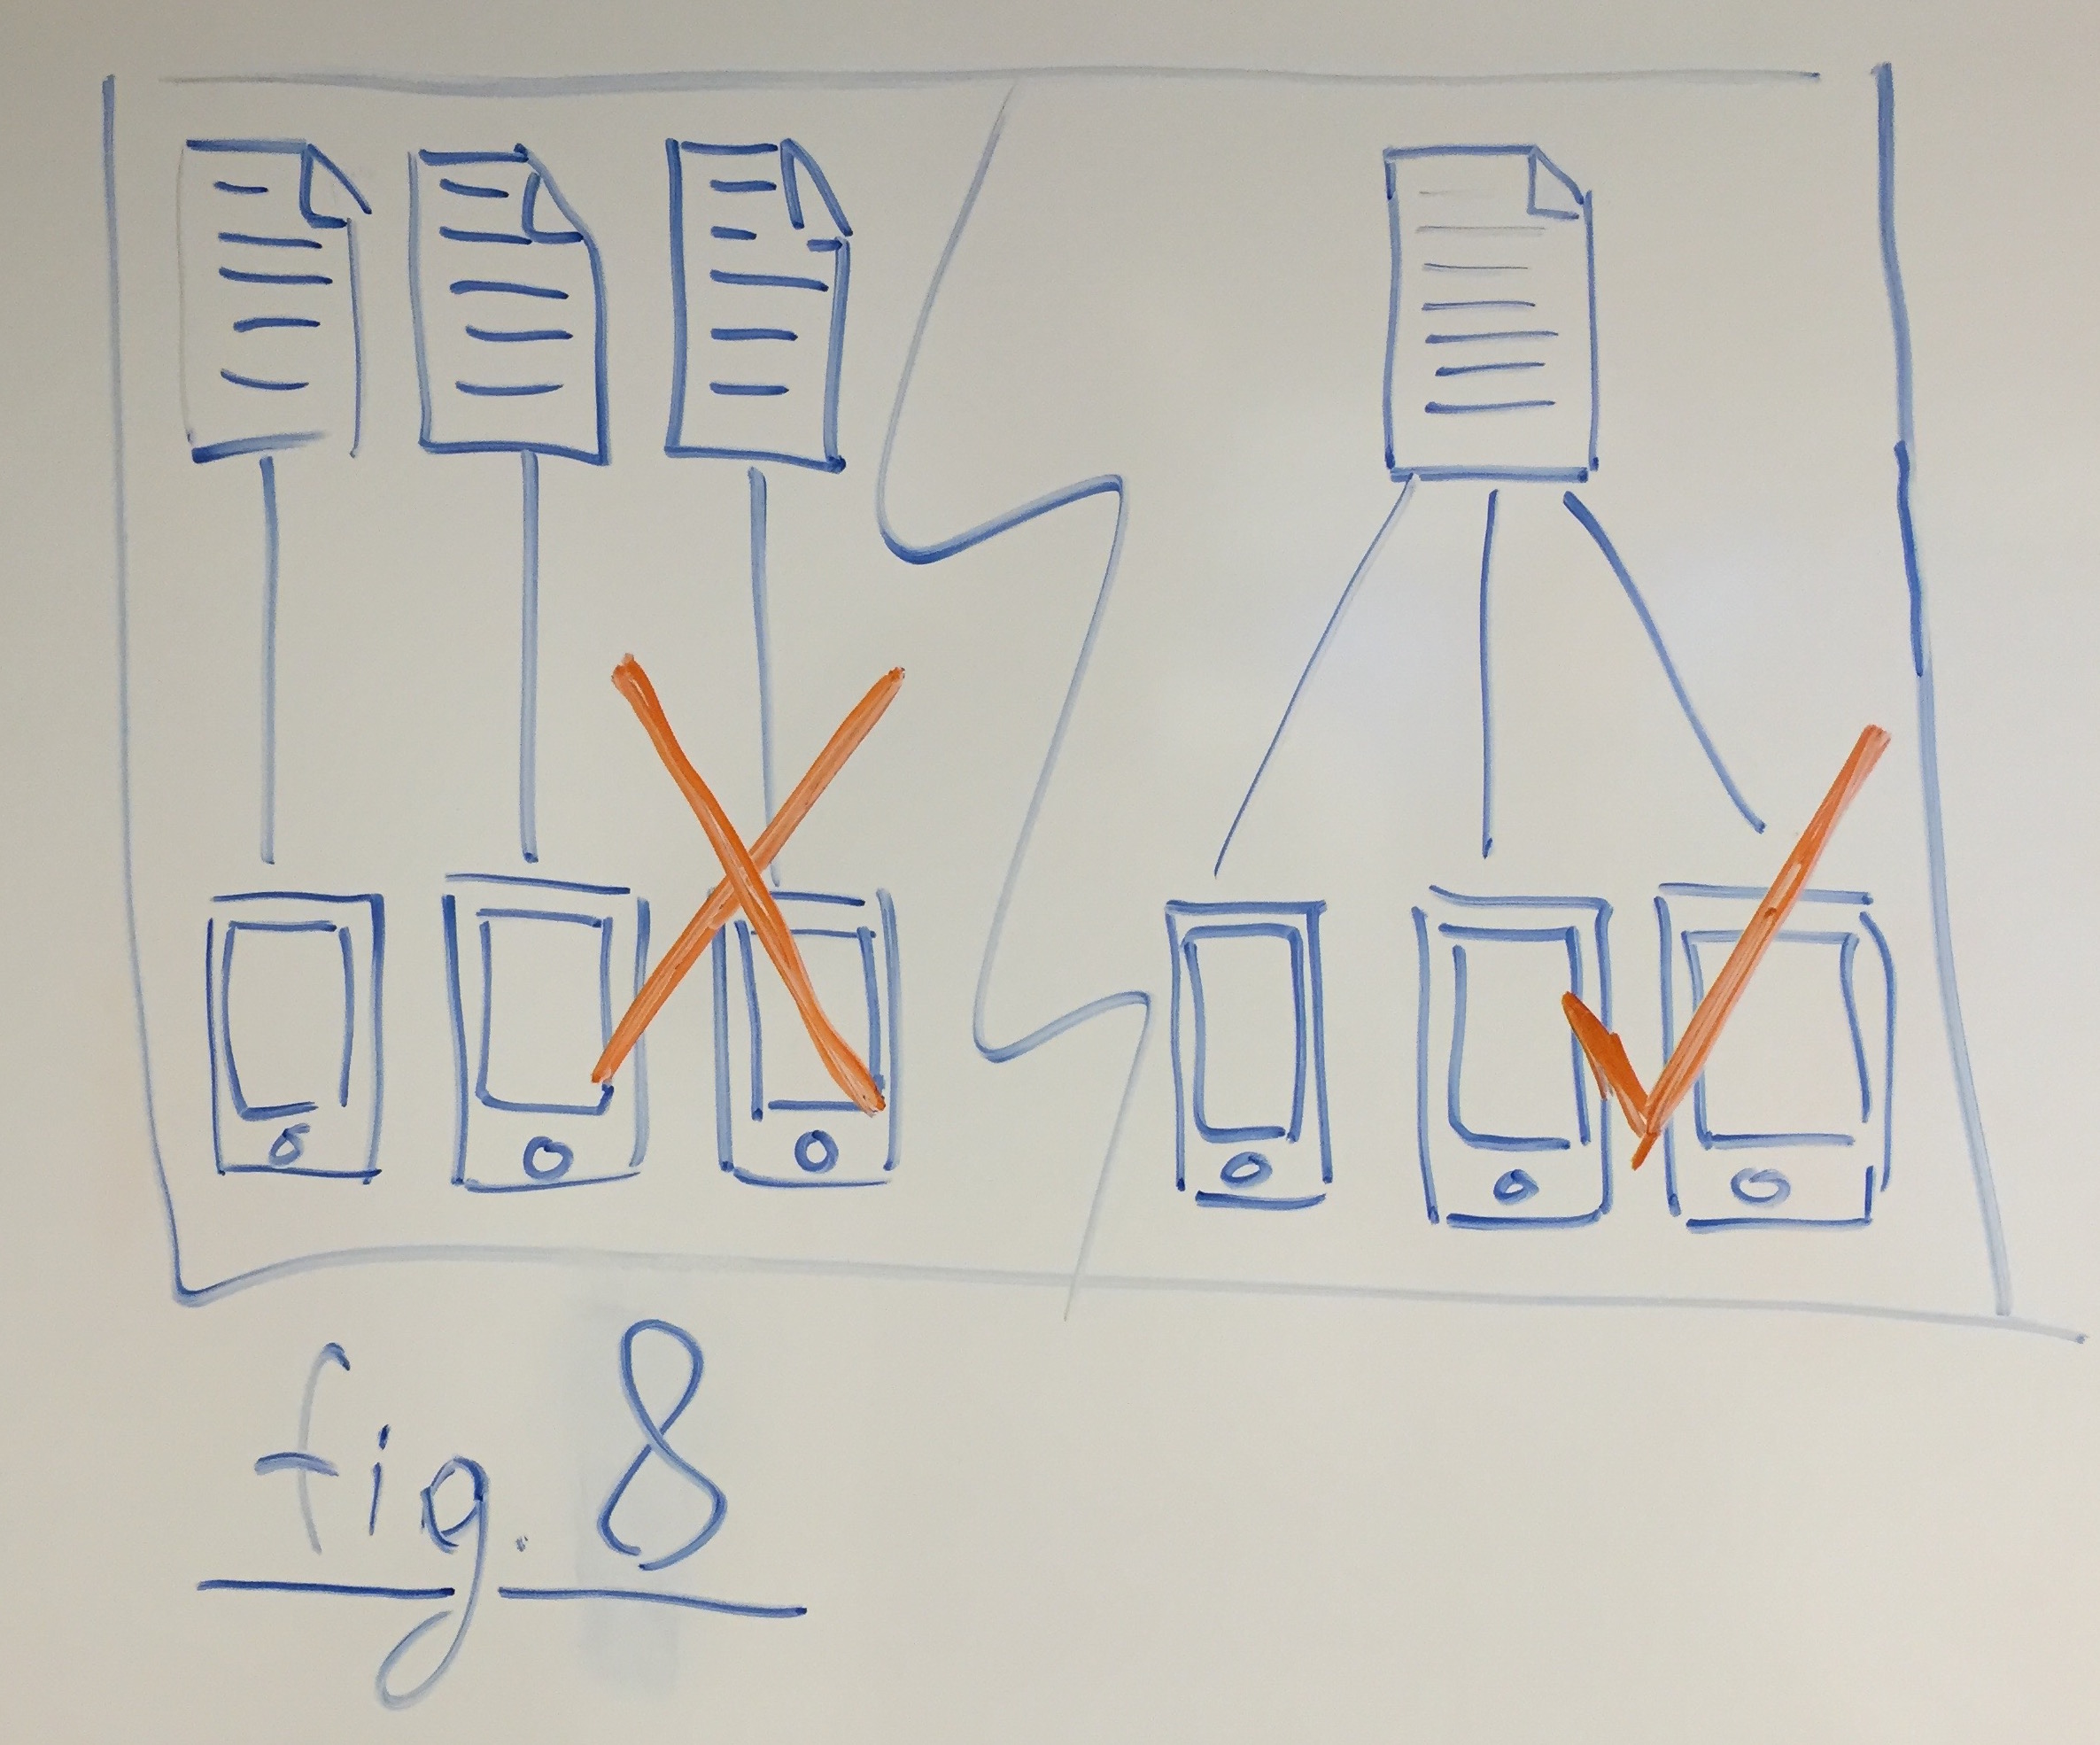 fig. 8